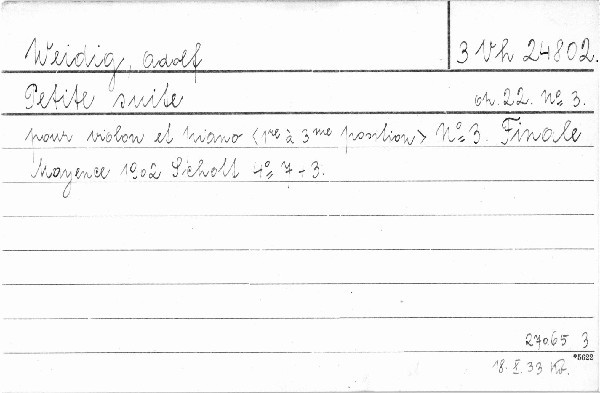 Weidig, Adolf
3 Vh 24802.
Petite suite op. 22. No 3.
pour violon et piano <1re à 3me position> No 3. Finale
Mayence 1902 Schott 4o 7+3.
27065 3
*5622
18. X. 33